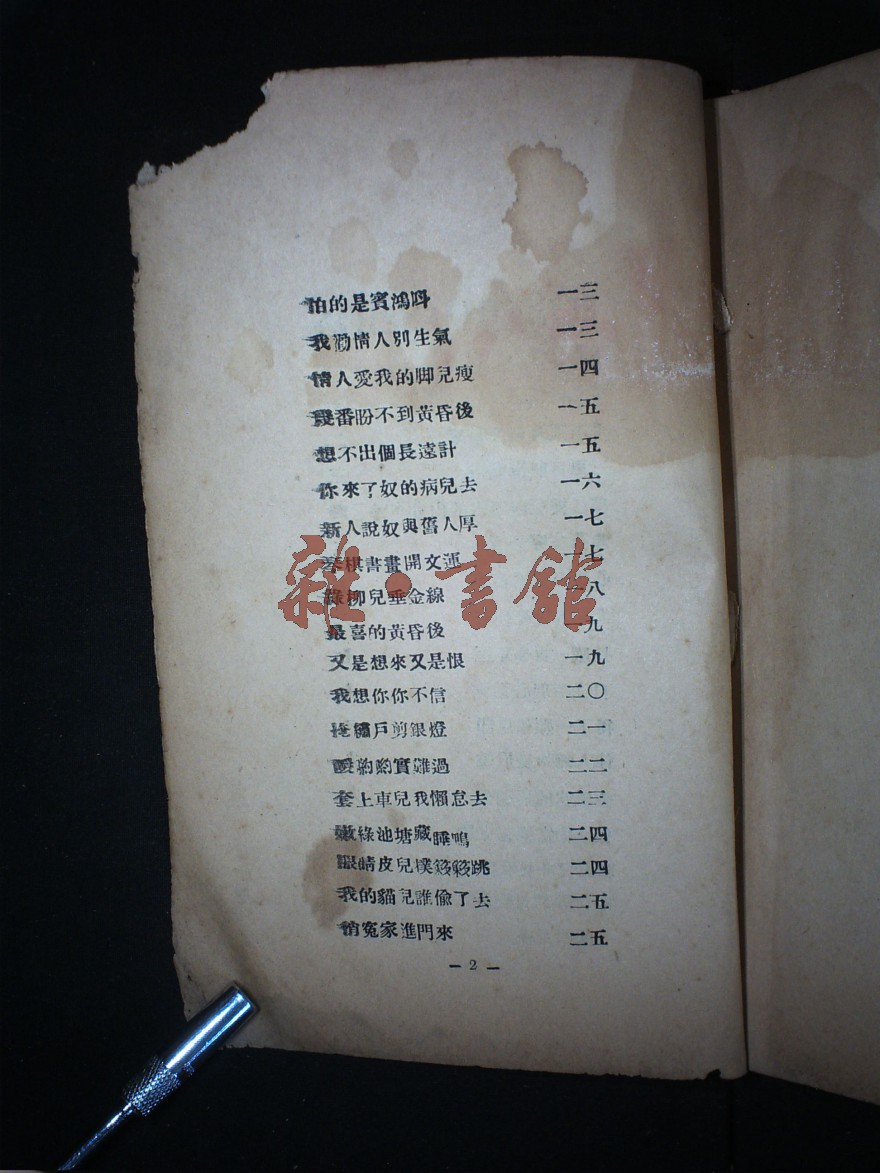 怕的是賓鴻呌 一三
我勸情人別生氣 一三
情人愛我的脚兒瘦 一四
幾番盼不到黃昏後 一五
想不出個長遠計 一五
你來了奴的病兒去 一六
新人說奴與舊人厚 一七
琴棋書畫開文運 一七
綠柳兒垂金線 一八
最喜的黃昏後 一九
又是想來又是恨 一九
我想你你不信 二〇
掩繡戶剪銀燈 二一
實難過 二二
套上車兒我懶怠去 二三
嫩綠池塘藏睡鳴 二四
眼睛皮兒撲簌簌跳 二四
我的貓兒誰偷了去 二五
悄冤家進門來 二五
— 2 —
雜·書館